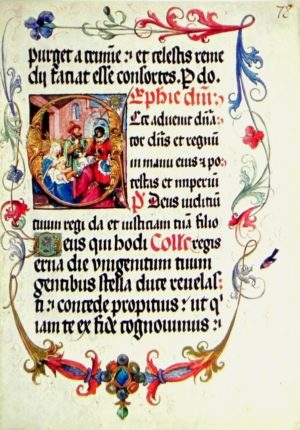 78
purget a crimine : et celestis reme
dii faciat esse consortes. P do.
Ephie dni:
Ecce advenit dna
tor dns et regnu
in manu eius z po
testas et imperiu
P. Deus iudiciu
tuum regi da et iusticiam tua filio
Deus qui hodi Colle regis
erna die vnigenitum tuum
gentibus stella duce revelas
ti : concede propitius : ut q
iam te ex fide cognovimus :